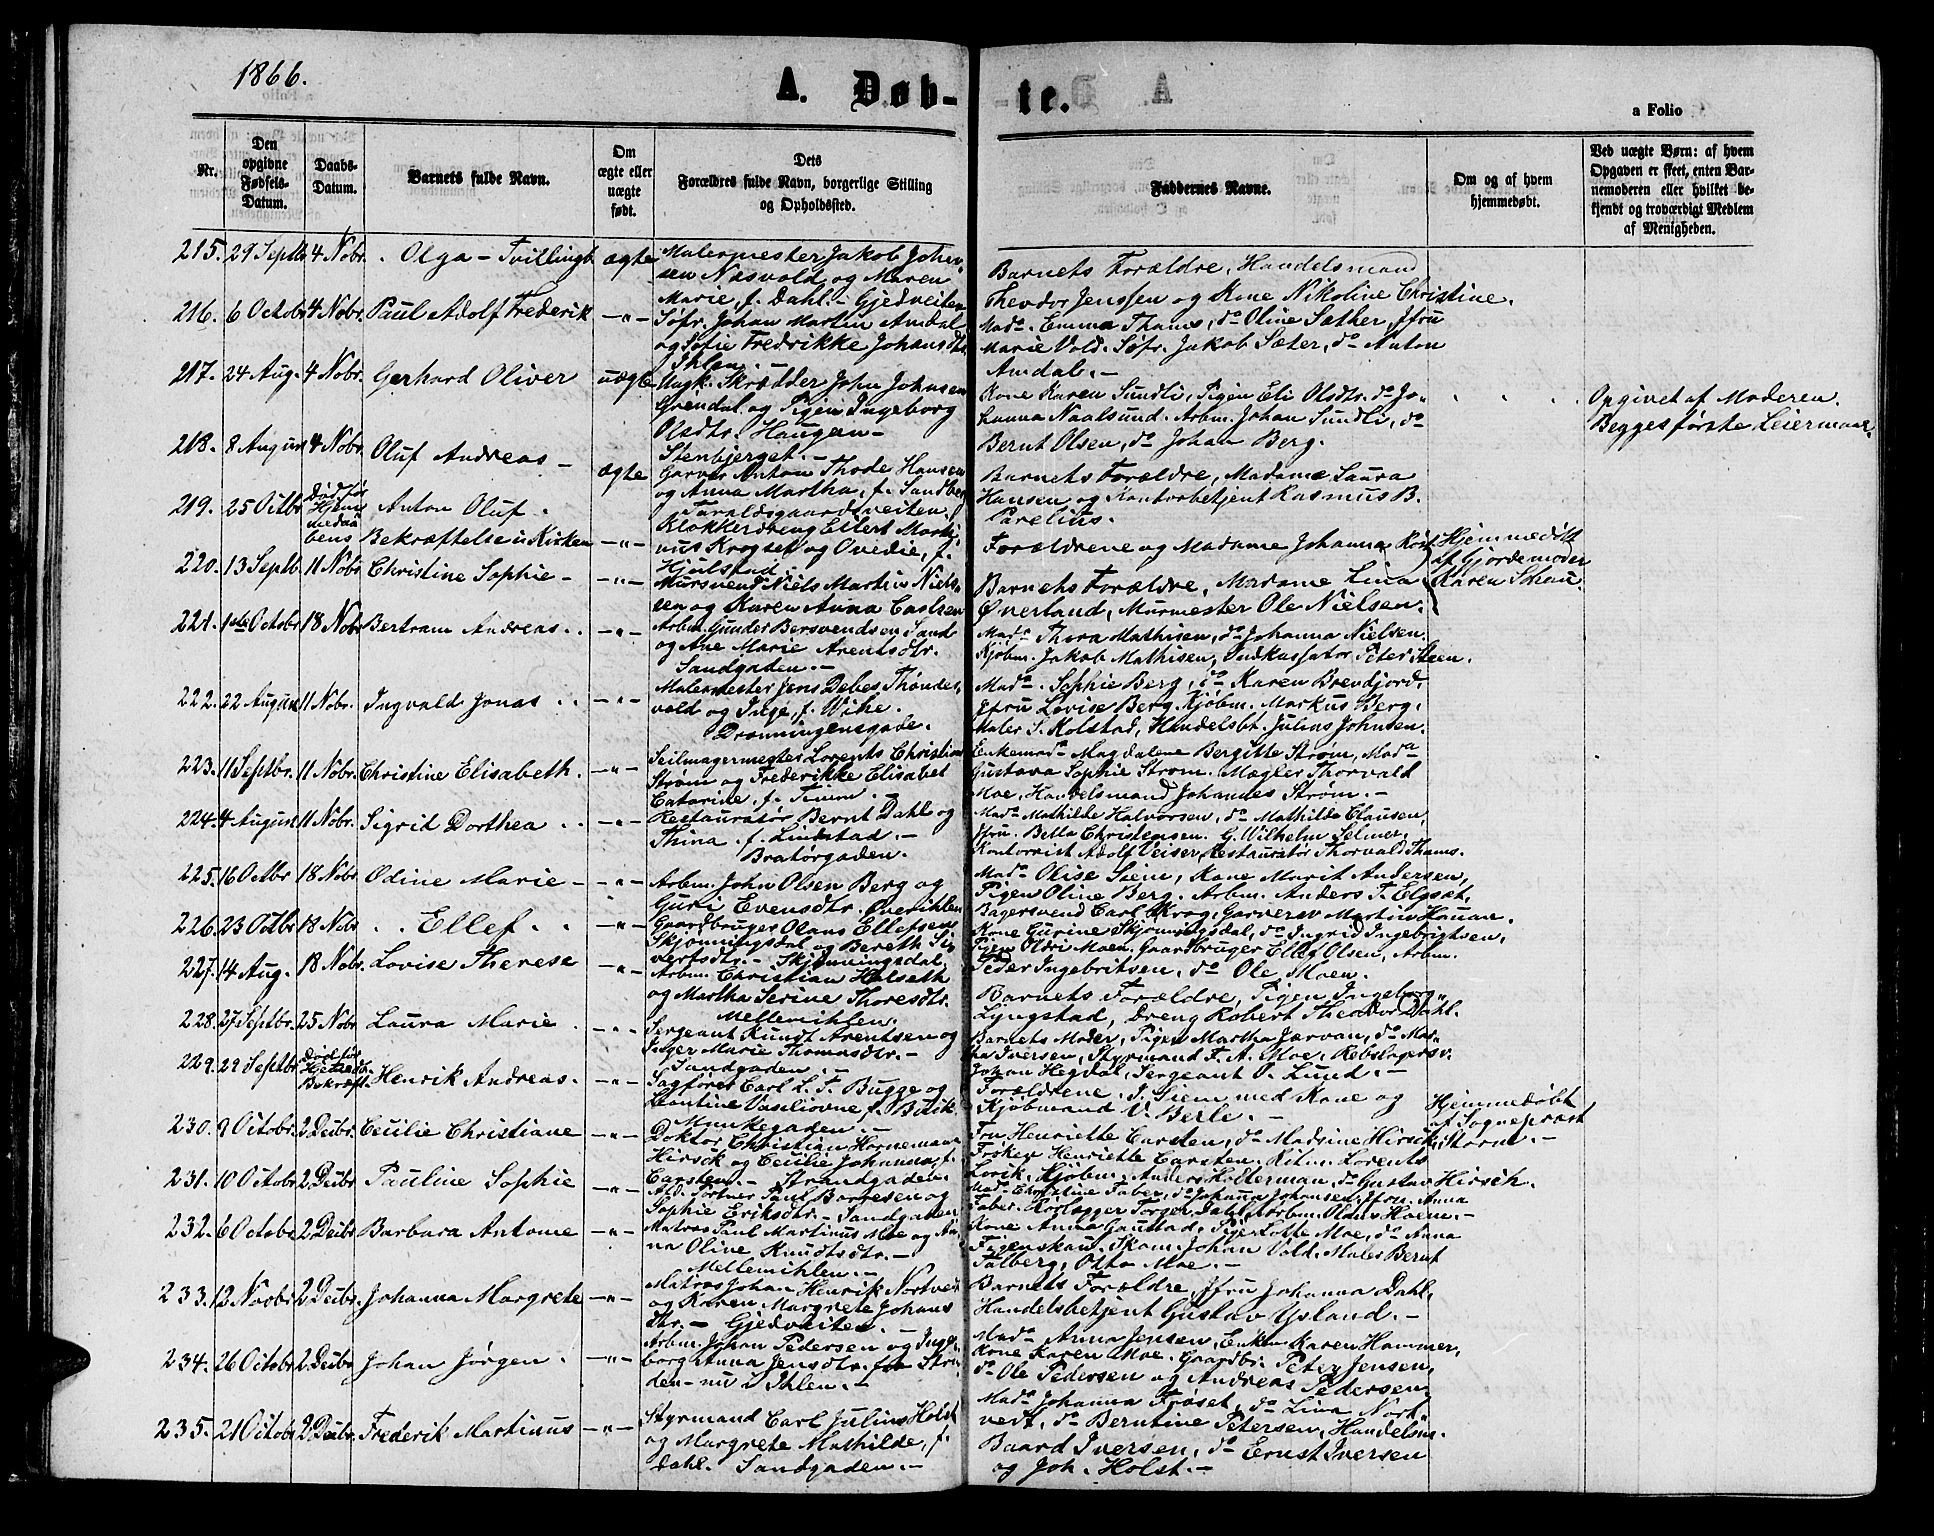 1866.
A. Døb-
te.
a Folio
Nr.
Den opgivne Fødsels-Datum.
Daabs-Datum.
Barnets fulde Navn.
Om ægte eller uægte født.
Dets Forældres fulde Navn, borgerlige Stilling og Opholdssted.
Faddernes Navne.
Om og af hvem hjemmedøbt.
Ved uægte Børn: af hvem Opgaven er skeet, enten Barnemoderen eller hvilket bekjendt og troværdigt Medlem af Menigheden.
215. 29 Septb 4 Nobr. Olga - Tvillingb. ægte
Malermester Jakob Johan-
sen Nasvold og Maren
Marie, f. Dahl. - Gjedveiten
Barnets Forældre, Handelsmand
Theodor Jenssen og Kone Nikoline Christine.
216. 6 Octobr 4 Nobr. Paul Adolf Frederik -"-
Søfr. Johan Martin Amdal
og Sofie Fredrikke Johansdtr.
Ihlen. -
Mada. Emma Thams, do Oline Sæther, Jfru
Marie Vold. Søfr. Jakob Sæter, do Anton
Amdal. -
217. 24 Aug. 4 Nobr. Gerhard Oliver uægte
Ungk. Skrædder John Johnsen
Grendal og Pigen Ingeborg
Olsdtr. Haugan -
Stenbjerget. -
Kone Karen Sundli, Pigen Eli Olsdtr. do Jo-
hanna Naalsund. Arbm. Johan Sundli, do
Bernt Olsen, do Johan Berg.
Opgivet af Moderen.
Begges første Leiermaal.
218. 8 August 4 Nobr. Oluf Andreas - ægte
Garver Anton Thode Hansen
og Anna Martha, f. Sandberg
Taraldsgaardsveiten.
Barnets Forældre, Madame Laura
Hansen og Kontorbetjent Rasmus B.
Parelius.
219. 25 Octbr Død før Hjemmedaabens Anton Oluf.
Bekræftelse i Kirken -"-
Klokkerdreng Ellert Marti-
nus Krogset og Ovedie, f.
Hjulstad. -
Forældrene og Madame Johanna
Hjemmedøbt
af Gjordemoder
Karen Schou.
220. 13 Septb. 11 Nobr Christine Sophie - -"-
Mursvend Niels Martin Niels-
sen og Karen Anna Carlsen
Barnets Forældre, Madame Lina
Øverland, Murmester Ole Nielsen.
221. 1ste Octobr 18 Nobr Bertram Andreas. . -"-
Arbm. Gunder Bersvendsen Sand
og Ane Marie Arentsdtr.
Sandgaden. -
Mada Thora Mathisen, do Johanna Nielsen.
Kjøbm. Jakob Mathisen, Indkassator Peter Steen.
222. 22 August 11 Nobr. Ingvald Jonas . . -"-
Malermester Jens Debes Thøndes-
vold og Inge, f. Wike.
Dronningensgade.
Mada. Sophie Berg, do Karen Brendjord,
Jfru Lovise Berg. Kjøbm. Markus Berg,
Maler S. Kolstad, Handelsbt. Julius Johnsen.
223. 11 Septbr. 11 Nobr. Christine Elisabeth. -"-
Seilmagermester Lorents Christian
Strøm og Frederikke Elisabet
Catarine, f. Timm. -
Enkemada Magdalene Bergitte Strøm, Mada
Gustava Sophie Strøm. Mægler Thorvald
Moe, Handelsmand Johannes Strøm. -
224. 4 August 11 Nobr. Sigrid Dorthea . . -"-
Restauratør Bernt Dahl og
Thina, f. Lindstad. -
Bratørgaden.
Mada Mathilde Halvorsen, do Mathilde Clausen,
Jfru. Betta Christensen. G. Wilhelm Selmer,
Kontorist Adolf Veiser, Restauratør Thorvald Thams.
225. 16 Octbr 18 Nobr. Odine Marie - -"-
Arbm. John Olsen Berg og
Guri Evensdtr. Øverihlen
Mada Olise Søem, Kone Marit Andersen,
Pigen Oline Berg. Arbm. Anders T. Elgsæt,
Bagersvend Carl Krog, Garversv Martin Hauan.
226. 23 Octbr 18 Nobr . . Ellef. . . -"-
Gaardbruger Olaus Ellefsen
Skjønningsdal og Bereth Si-
vertsdtr. - Skjønningsdal
Kone Gurine Skjønningsdal, do Ingrid Ingebrigtsen,
Pigen Oldri Moen. Gaardbruger Ellef Olsen, Arbm.
Peder Ingebritsen, do Ole Moen.
227. 14 Aug. 18 Nobr. Lovise Therese -"-
Arbm. Christian Halseth
og Martha Serine Thoresdtr.
Mellemihlen.
Barnets Forældre, Pigen Ingeborg
Lyngstad, Dreng Robert Theodor Dahl.
228. 27 Septbr. 25 Nobr. Laura Marie . -"-
Sergeant Knudt Arentsen og
Inger Marie Thomasdtr. -
Sandgaden. -
Barnets Moder, Pigen Martha Jarvan, do Mar-
tha Iversen, Styrmand F. A. Moe, Rebslagersv.
Johan Hegdal, Sergeant O. Lund. -
229. 29 Septbr Død før Hjemmed. Bekræft. Henrik Andreas. -"-
Sagfører Carl L. T. Bugge og
Leontine Vasiliovne, f. Botik
Munkegaden. -
Forældrene, J. Siem med Kone og
Kjøbmand V. Berle. -
Hjemmedøbt
af Sognepræst
Storm. -
230. 9 Octobr. 2 Decbr. Cecilie Christiane -"-
Doktor Christian Hornemann
Hirsch og Cecilie Johanna, f.
Carsten. - Strandgaden.
Fru Henriette Carsten, do Madsine Hirsch,
Frøken Henriette Carsten. Ritm. Lorents
Lorck, Kjøbm. Anders Holterman, do Gustav Hirsch.
231. 10 Octobr 2 Decbr. Pauline Sophie -"-
Afd. Portner Paul Baresen og
Sophie Eriksdtr. - Sandgaden
Mada Christine Faber, do Johanna Johansen, Jfru. Anna
Faber. Rorlægger Torger Dahl, Arbm. Oluf Hoem. -
232. 6 Octobr 2 Decbr Barbara Antonie -"-
Matros Paul Martinus Moe og An-
na Oline Knudtsdtr. -
Mellemihlen. -
Kone Anna Gaustad, Pigen Lotte Moe, do Anna
Figenskau. Skom. Johan Vold, Maler Bernt
Talberg, Otto Moe. -
233. 12 Novbr 2 Decbr. Johanna Margrete -"-
Matros Johan Henrik Nortvedt
og Karen Margrete Johans-
dtr. - Gjedveiten. -
Barnets Forældre, Jfru Johanna Dahl,
Handelsbetjent Gustav Ysland. -
234. 26 Octobr 2 Decbr Johan Jørgen . -"-
Arbm. Johan Pedersen og Inge-
borg Anna Jensdtr. fra Stri-
den - nu i Ihlen. -
Mada Anna Jensen, Enke Karen Hammer,
Kone Karen Moe. Gaardbr. Peter Jensen,
do Ole Pedersen og Andreas Pedersen.
235. 21 Octobr 2 Decbr. Frederik Martinus -"-
Styrmand Carl Julius Holst
og Margrete Mathilde, f.
Dahl. Sandgaden. -
Mada Johanna Frøset, do Lina Nort-
vedt, do Berntine Petersen, Handelsm.
Baard Iversen, do Ernst Iversen
og Joh. Holst. -